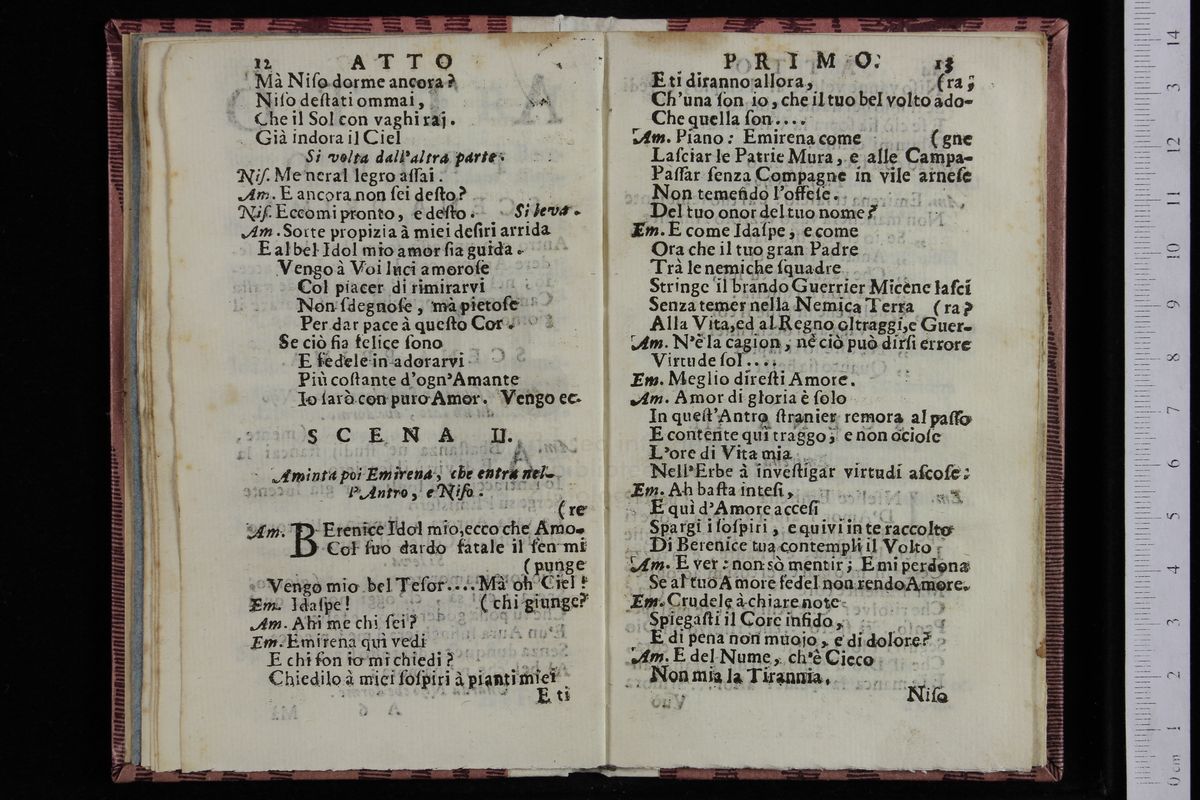 12 ATTO
Mà Niſo dorme ancora?
Niſo deſtati ommai,
Che il Sol con vaghi raj.
Già indora il Ciel
Si volta dall'altra parte.
Niſ. Me n'eral legro aſſai.
Am. E ancora non ſei deſto?
Niſ. Eccomi pronto, e deſto. Si leva.
Am. Sorte propizia à miei deſiri arrida
E al bel Idol mio amor ſia guida.
Vengo à Voi luci amoroſe
Col piacer di rimirarvi
Non ſdegnoſe, mà pietoſe
Per dar pace à queſto Cor.
Se ciò fia felice ſono
E fedele in adorarvi
Più coſtante d'ogn'Amante
Io ſarò con puro Amor. Vengo ec.
SCENA II.
Aminta poi Emirena, che entra nel-
l'Antro, e Niſo.
(re
Am. BErenice Idol mio, ecco che Amo-
Col ſuo dardo fatale il ſen mi
(punge
Vengo mio bel Teſor.... Mà oh Ciel!
Em. Idaſpe! (chi giunge?
Am. Ahi me chi ſei?
Em. Emirena quì vedi
E chi ſon io mi chiedi?
Chiedilo à miei ſoſpiri à pianti miei
E ti
PRIMO. 13
E ti diranno allora, (ra;
Ch'una ſon io, che il tuo bel volto ado-
Che quella ſon....
Am. Piano: Emirena come (gne
Laſciar le Patrie Mura, e alle Campa-
Paſſar ſenza Compagne in vile arneſe
Non temendo l'offeſe.
Del tuo onor del tuo nome?
Em. E come Idaſpe, e come
Ora che il tuo gran Padre
Trà le nemiche ſquadre
Stringe il brando Guerrier Micene laſci
Senza temer nella Nemica Terra (ra?
Alla Vita, ed al Regno oltraggi, e Guer-
Am. N'è la cagion, nè ciò può dirſi errore
Virtude ſol....
Em. Meglio direſti Amore.
Am. Amor di gloria è ſolo
In queſt'Antro ſtranier remora al paſſo
E contente quì traggo, e non ocioſe
L'ore di Vita mia
Nell'Erbe à inveſtigar virtudi aſcoſe:
Em. Ah baſta inteſi,
E quì d'Amore acceſi
Spargi i ſoſpiri, e quivi in te raccolto
Di Berenice tua contempli il Volto
Am. E ver: non sò mentir; E mi perdona
Se al tuo Amore fedel non rendo Amore.
Em. Crudele à chiare note
Spiegaſti il Core infido,
E di pena non muojo, e di dolore?
Am. E del Nume, ch'è Cieco
Non mia la Tirannia.
Niſo